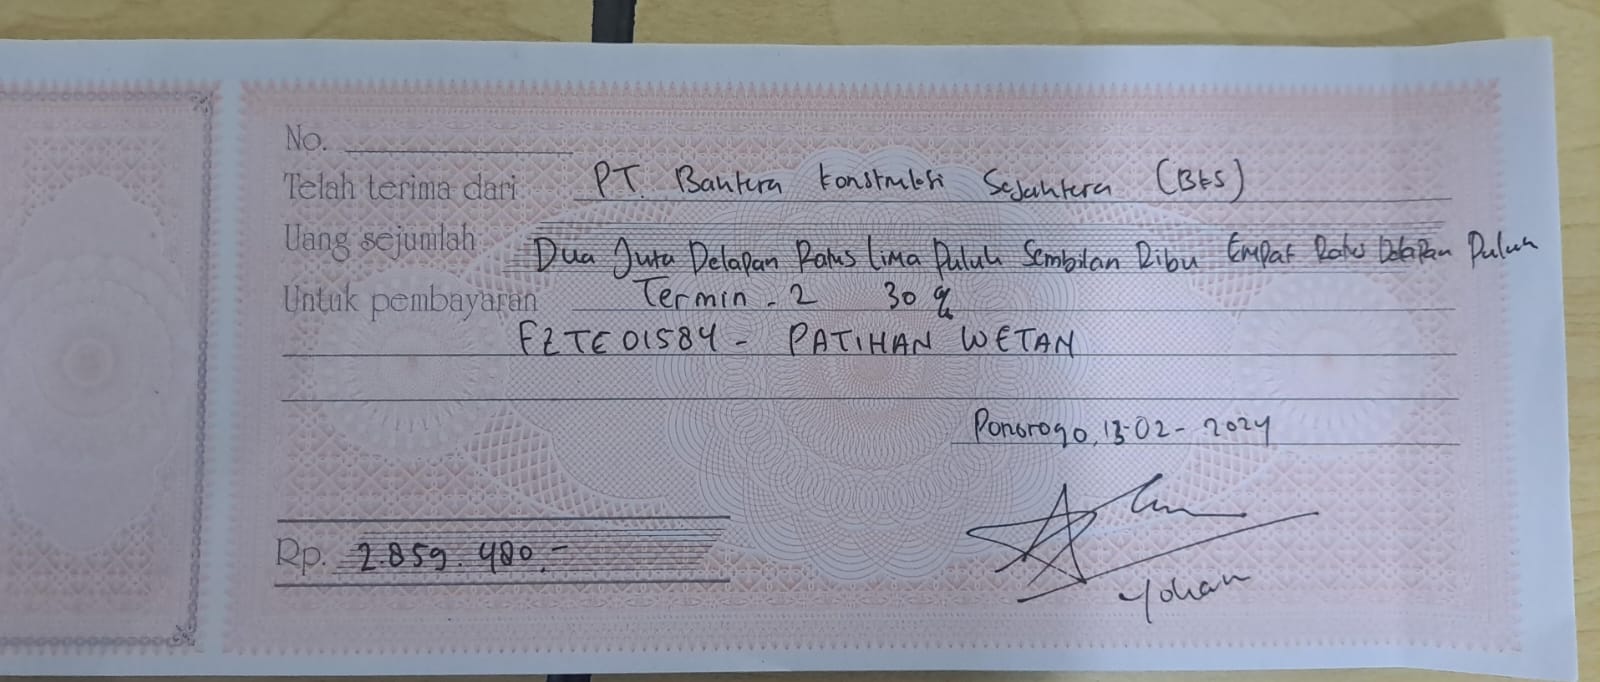 No.
Telah terima dari PT. Bahtera Konstruksi Sejahtera (BKS)
Uang sejumlah Dua Juta Delapan Ratus Lima Puluh Sembilan Ribu Empat Ratus Delapan Puluh
Untuk pembayaran Termin - 2 30 %
EZTE01584 - PATIHAN WETAN
Ponorogo, 13-02-2024
Rp. 2.859.480,-
Yohan